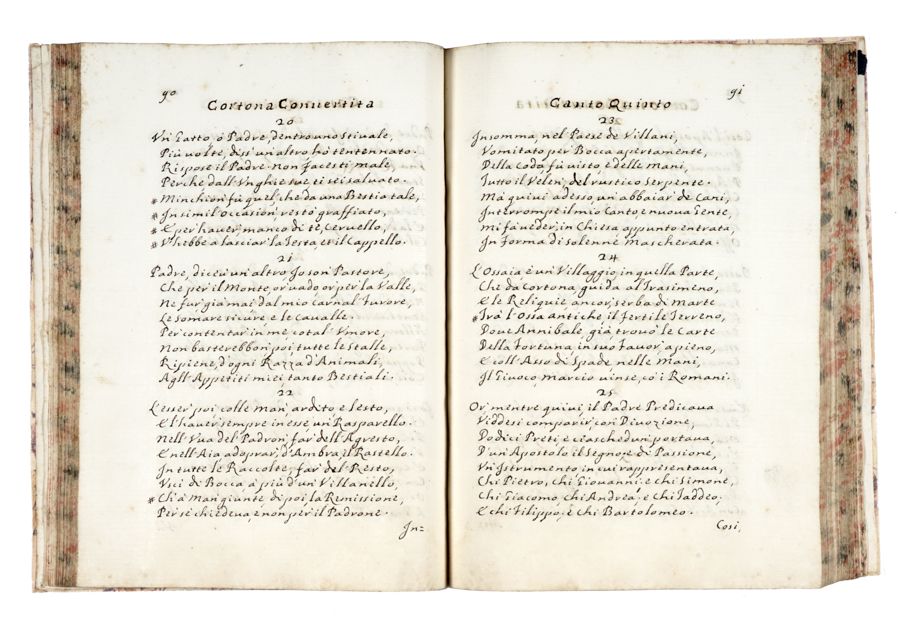 90
Cortona Convertita
20
Vn Gatto, ò Padre, dentro uno stivale,
Più volte, diss'un altro hò tentennato.
Rispose il Padre non facesti male
Perche dall'Vnghie sue ti sei salvato.
* Minchion fù quel che da una Bestia tale,
* In simil'occasion, restò graffiato,
* E per haver, manco di te, Cervello,
* V'hebbe à lasciar la Testa et il Cappello.
21
Padre, dicev'un altro Io son Pastore,
Che per il Monte, or vado or per la Valle,
Ne fur già mai dal mio carnal furore,
Le somare sicure e le Cavalle.
Per contentar in me cotal Vmore,
Non basterebbon poi tutte le stalle,
Ripiene, d'ogni Razza d'Animali,
Agl'Appetiti miei tanto Bestiali.
22
L'esser poi colle Man', ardito, e lesto,
E l'haver sempre in esse un Rasparello.
Nell'Vua del Padron, far dell'Agresto,
E nell'Aia adoprar, d'Ambra il Rastello.
In tutte le Raccolte, far del Resto,
Vscì di Bocca à più d'un Villanello,
* Ch'à Man giunte di poi, la Remissione,
Per se chiedeva, e non per il Padrone.
In=
91
Canto Quinto
23
Insomma, nel Paese de Villani,
Vomitato per Bocca apertamente,
Della Coda fù visto e delle Mani,
Tutto il Velen, del rustico Serpente.
Mà quivi adesso un abbaiar de Cani,
Interrompe il mio Canto, e nuova Gente,
Mi fà veder, in Chiesa appunto entrata,
In forma di solenne Mascherata.
24
L'Ossaia è un Villaggio, in quella Parte,
Che dà Cortona, guida al Trasimeno,
E le Reliquie ancor, serba di Marte
* Trà l'Ossa antiche il fertile Terreno,
Doue Annibale già trovò le Carte
Della Fortuna in suo favor, à pieno,
E coll'Asso di Spade, nelle Mani,
Il Giuoco marcio vinse, cò i Romani.
25
Or' mentre quivi, il Padre Predicaua
Viddesi comparir, con Divozione,
Dodici Preti, e ciaschedun portava,
D'un Apostolo il Segno, e di Passione,
Vn Istrumento in cui rappresentava,
Chi Pietro, chi Giovanni, e chi Simone,
Chi Giacomo chi Andrea, e chi Taddeo,
E chi Filippo, e chi Bartolomeo.
Così,